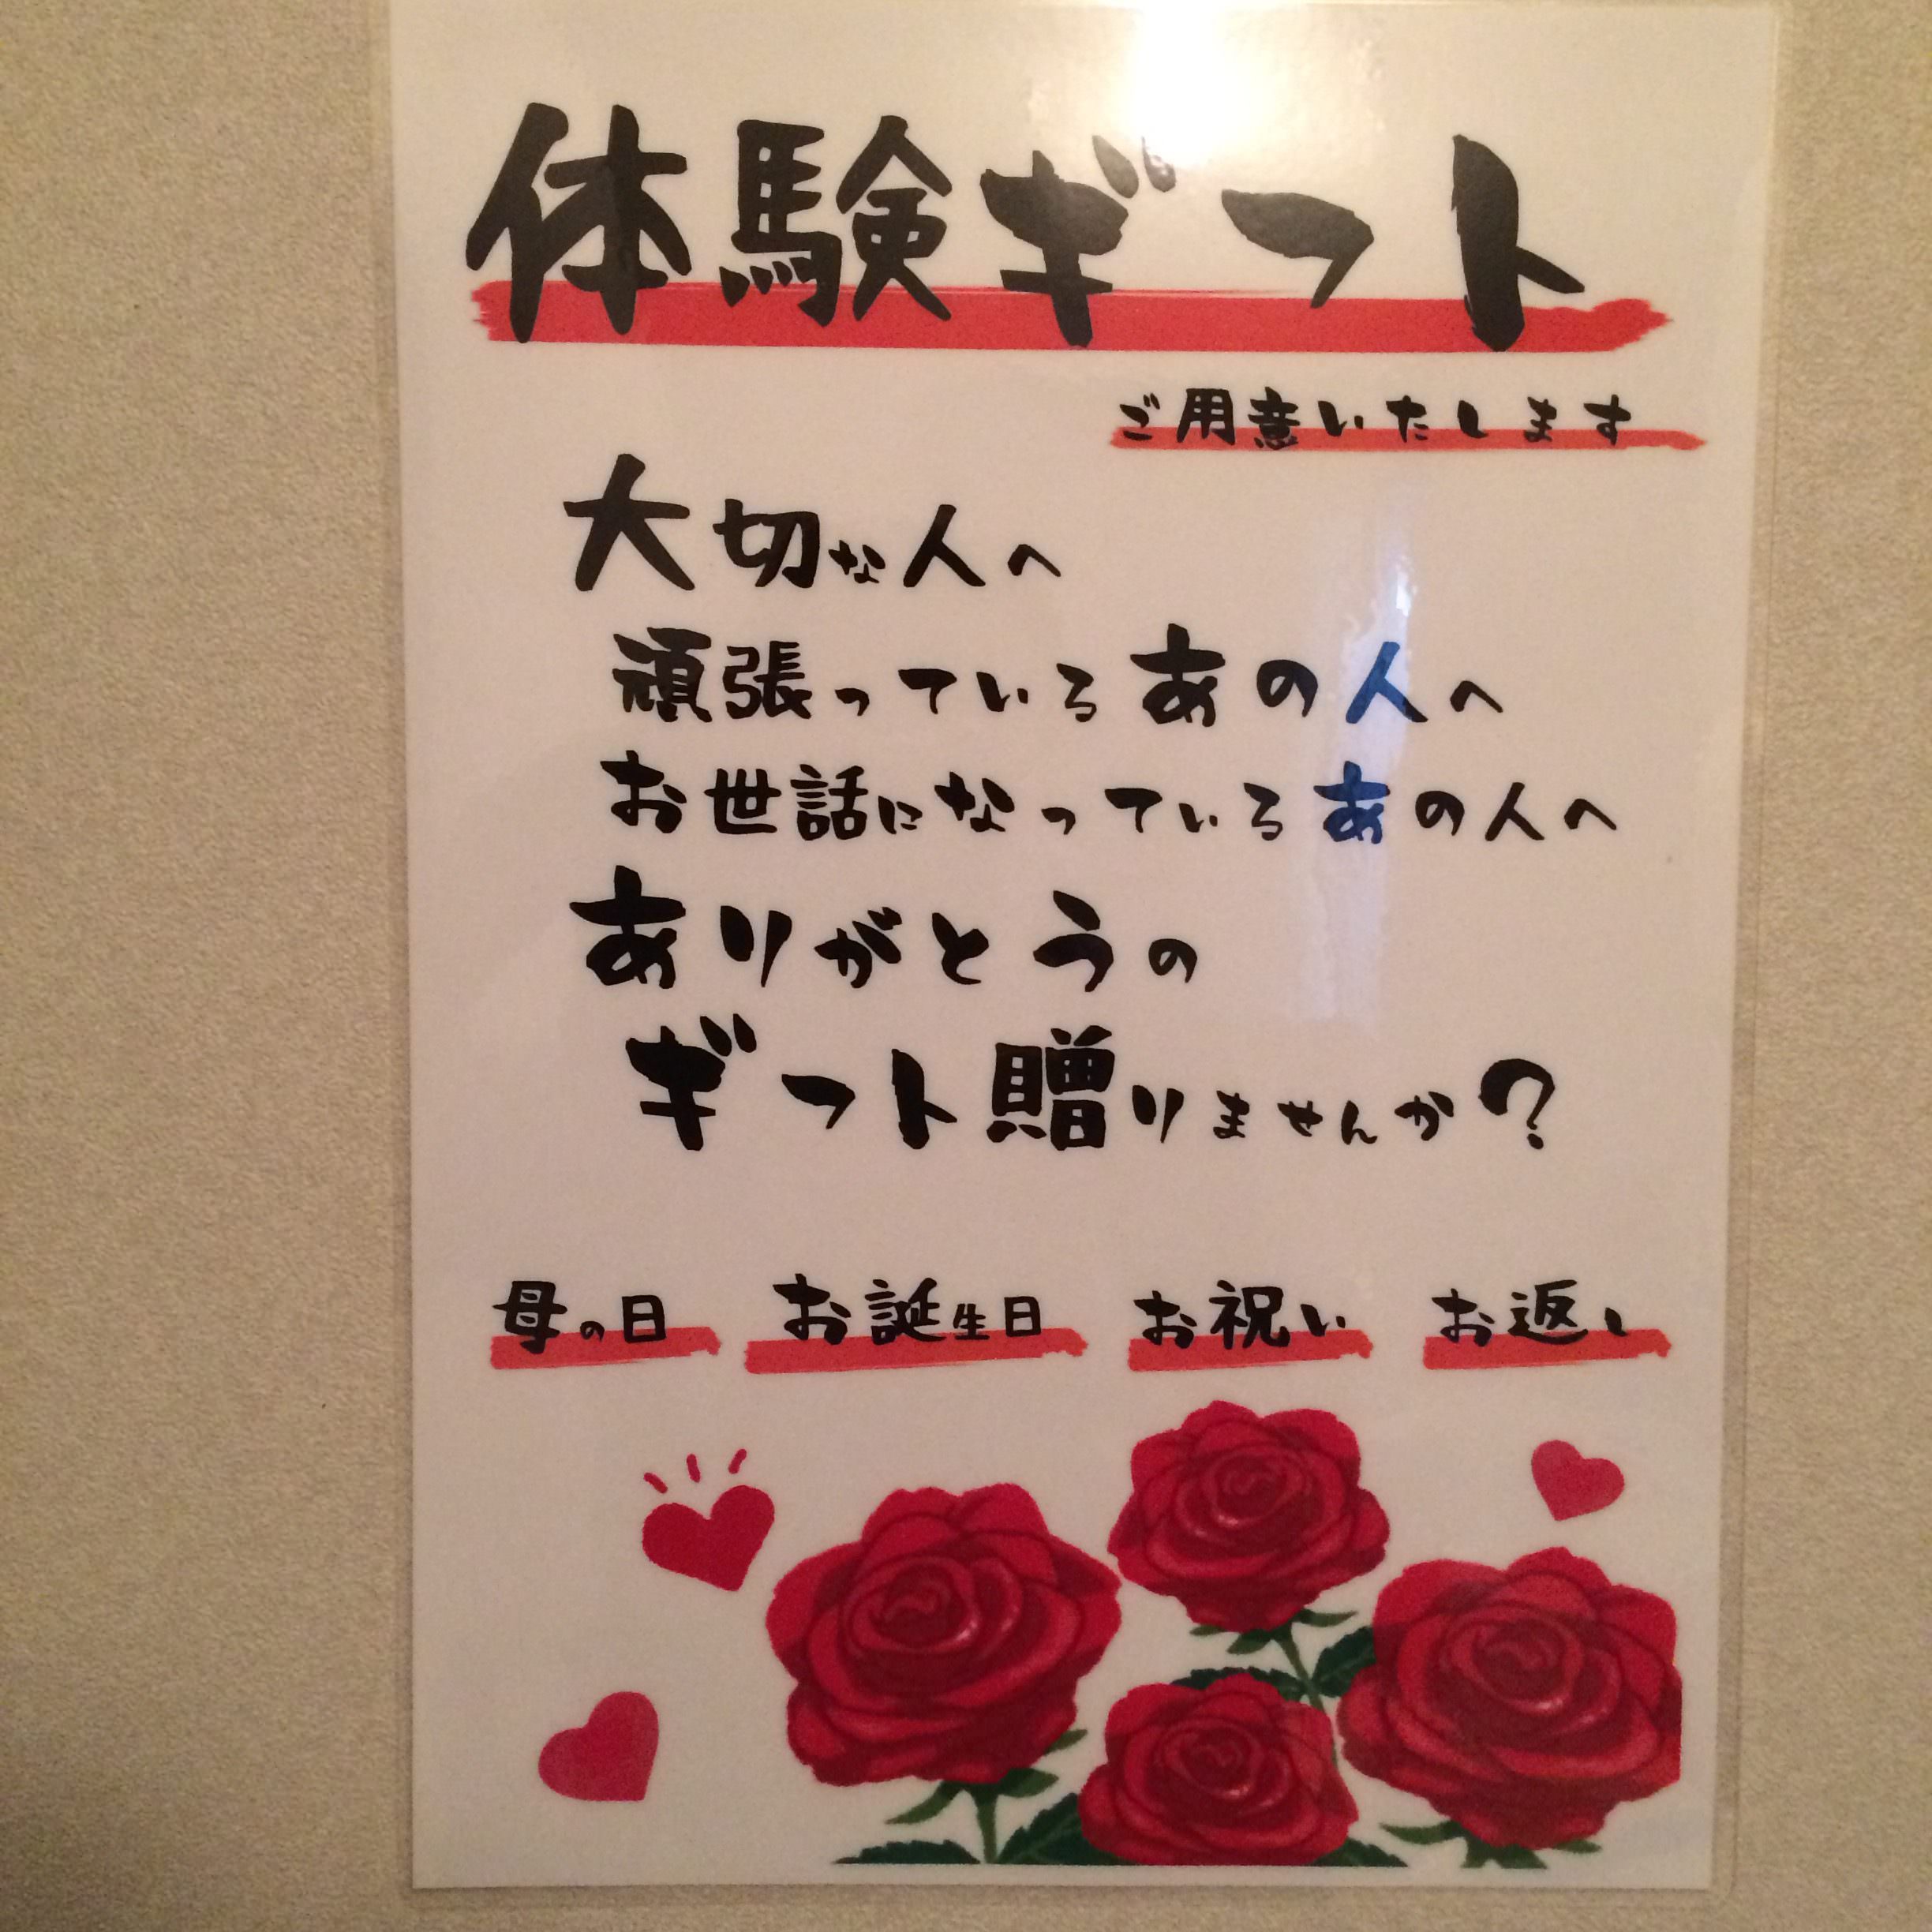 体験ギフト
ご用意いたします
大切な人へ
頑張っているあの人へ
お世話になっているあの人へ
ありがとうの
ギフト贈りませんか?
母の日 お誕生日 お祝い お返し